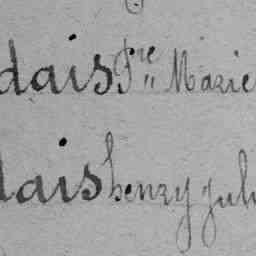 dais Pre Marie
dais henry Jul